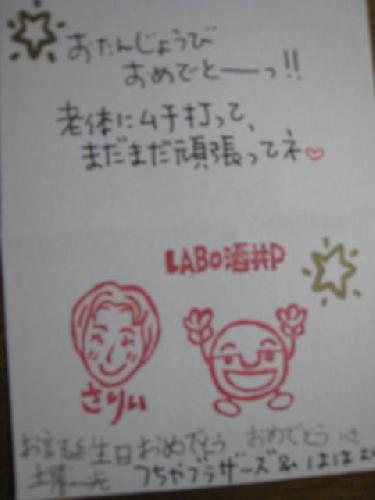 おたんじょうび
おめでとーっ!!
老体にムチ打って、
まだまだ頑張ってネ♡
LABO酒井P
さりぃ
生日おめでとう おめでとう
つちやブラザーズ&